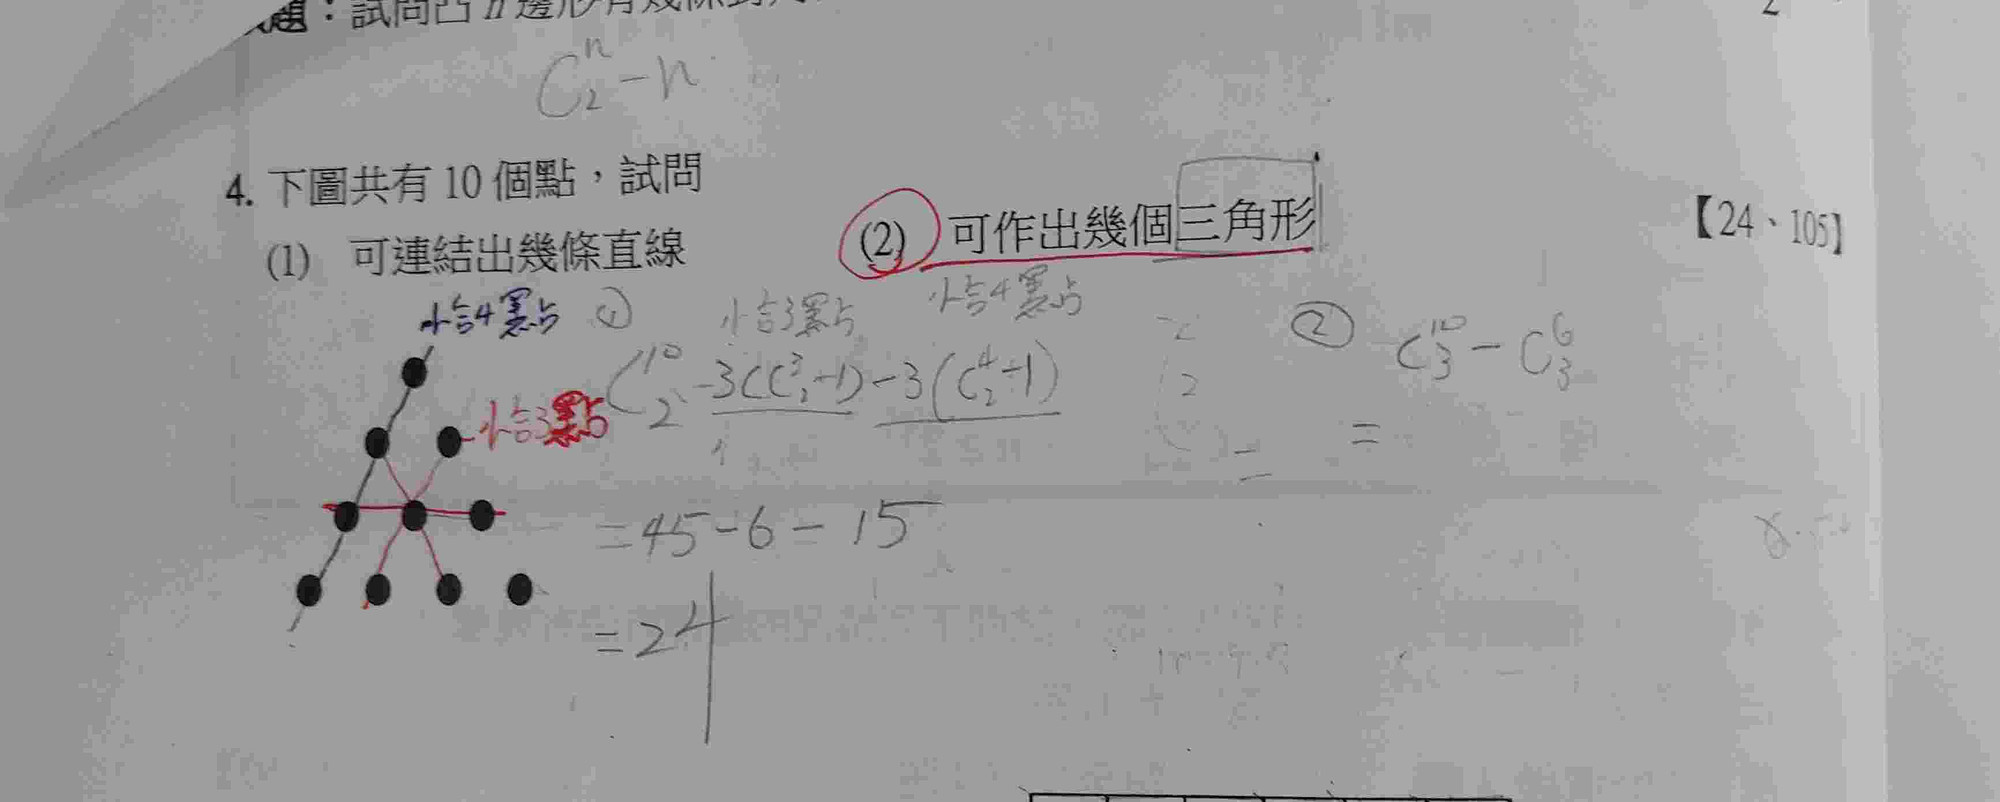 題：試問凸 n 邊形有幾條對
C₂ⁿ-n
4. 下圖共有 10 個點，試問
(1) 可連結出幾條直線
(2) 可作出幾個三角形
【24、105】
恰4點 ①
恰3點 恰4點
恰3點
C₂¹⁰-3(C₂³-1)-3(C₂⁴-1)
=45-6-15
=24
② C₃¹⁰-C₃⁶
=